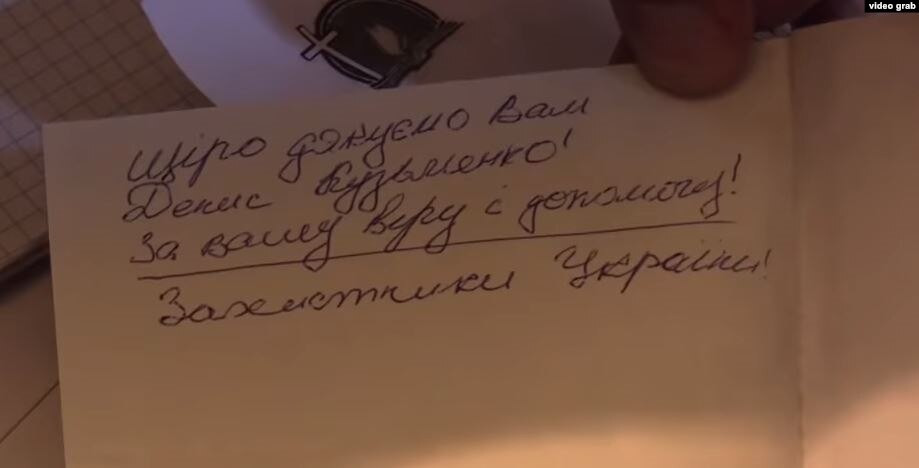 video grab
Щіро дякуємо Вам
Денис Кузьменко!
За вашу віру і допомогу!
Захистники України!